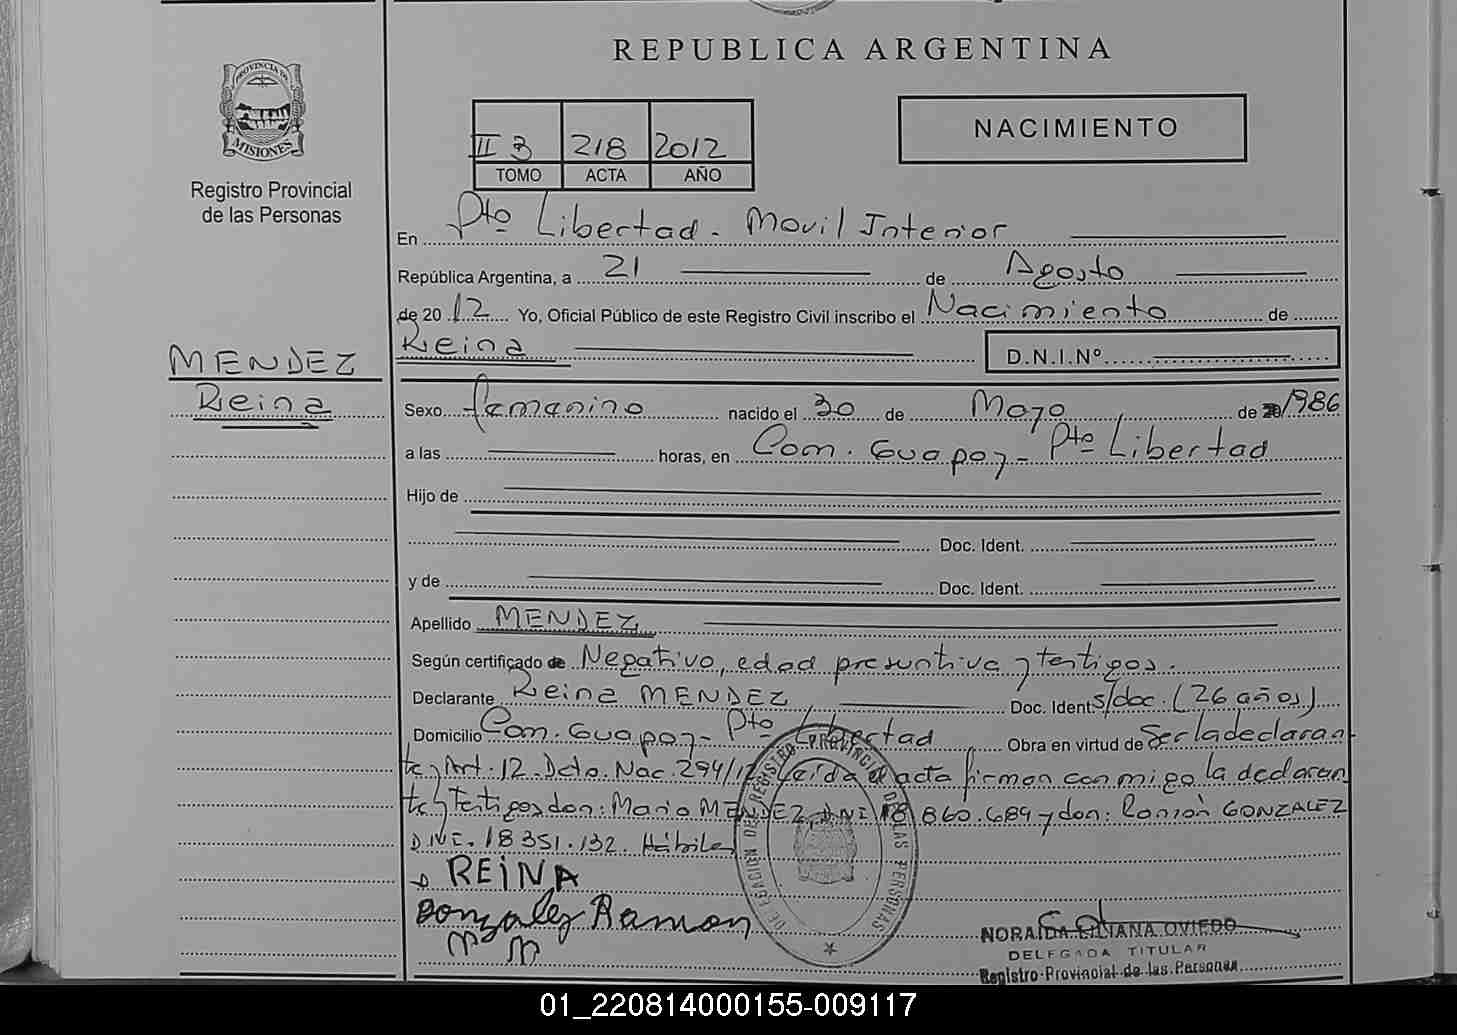 REPUBLICA ARGENTINA
PROVINCIA DE
MISIONES
Registro Provincial
de las Personas
II 3 218 2012
TOMO ACTA AÑO
NACIMIENTO
En Pto Libertad - Movil Interior
República Argentina, a 21 de Agosto
de 2012 Yo, Oficial Público de este Registro Civil inscribo el Nacimiento de
Reina D.N.I.Nº
MENDEZ
Reina
Sexo femenino nacido el 30 de Mayo de 1986
a las horas, en Com. Guapoy - Pto Libertad
Hijo de
Doc. Ident.
y de Doc. Ident.
Apellido MENDEZ
Según certificado de Negativo, edad presuntiva y testigos.
Declarante Reina MENDEZ, Doc. Ident s/doc. (26 años)
Domicilio Com. Guapoy - Pto Libertad Obra en virtud de Ser la declaran
te y Art. 12. Dcto. Nac. 294/12. Leída el acta firman conmigo la declaran
te y Testigos don: Mario MENDEZ, DNI 18.860.689 y don: Ramón GONZALEZ
DNI. 18.351.132. Hábiles
REINA
Gonzalez Ramon
M M
DELEGACION DEL REGISTRO PROVINCIAL DE LAS PERSONAS
NORAIDA LILIANA OVIEDO
DELEGADA TITULAR
Registro Provincial de las Personas
01_220814000155-009117